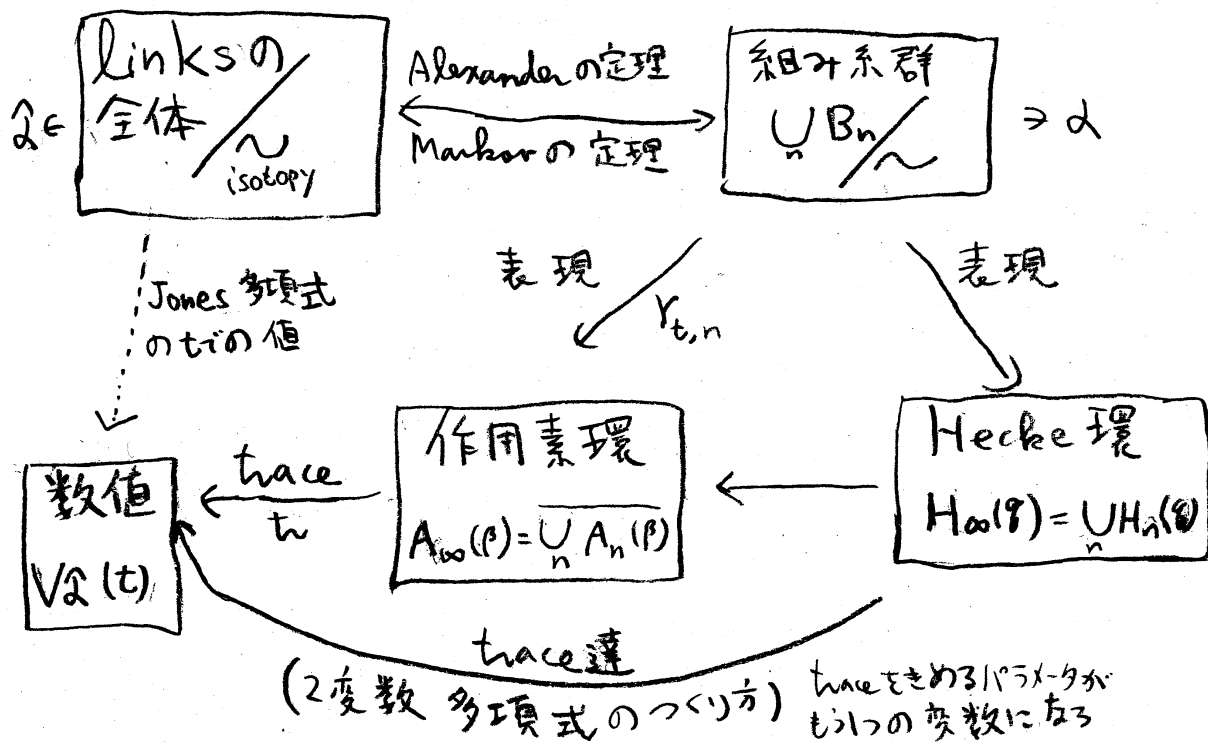 linksの
全体/~
isotopy
α̂∈
Alexanderの定理
Markovの定理
組み糸群
∪Bn/~
n
∋α
Jones多項式
のtでの値
表現
r_{t,n}
表現
数値
Vα̂(t)
trace
tr
作用素環
A∞(β)=∪An(β)
n
Hecke環
H∞(q)=∪Hn(q)
n
trace達
(2変数多項式のつくり方)
traceをきめるパラメータが
もう1つの変数になる